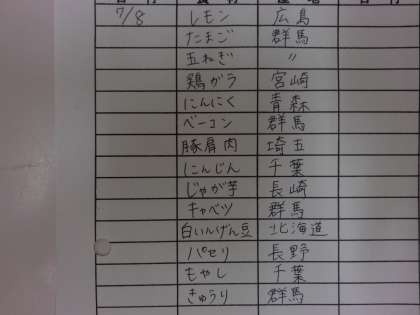 7/8 レモン 広島
たまご 群馬
玉ねぎ 〃
鶏ガラ 宮崎
にんにく 青森
ベーコン 群馬
豚肩肉 埼玉
にんじん 千葉
じゃが芋 長崎
キャベツ 群馬
白いんげん豆 北海道
パセリ 長野
もやし 千葉
きゅうり 群馬